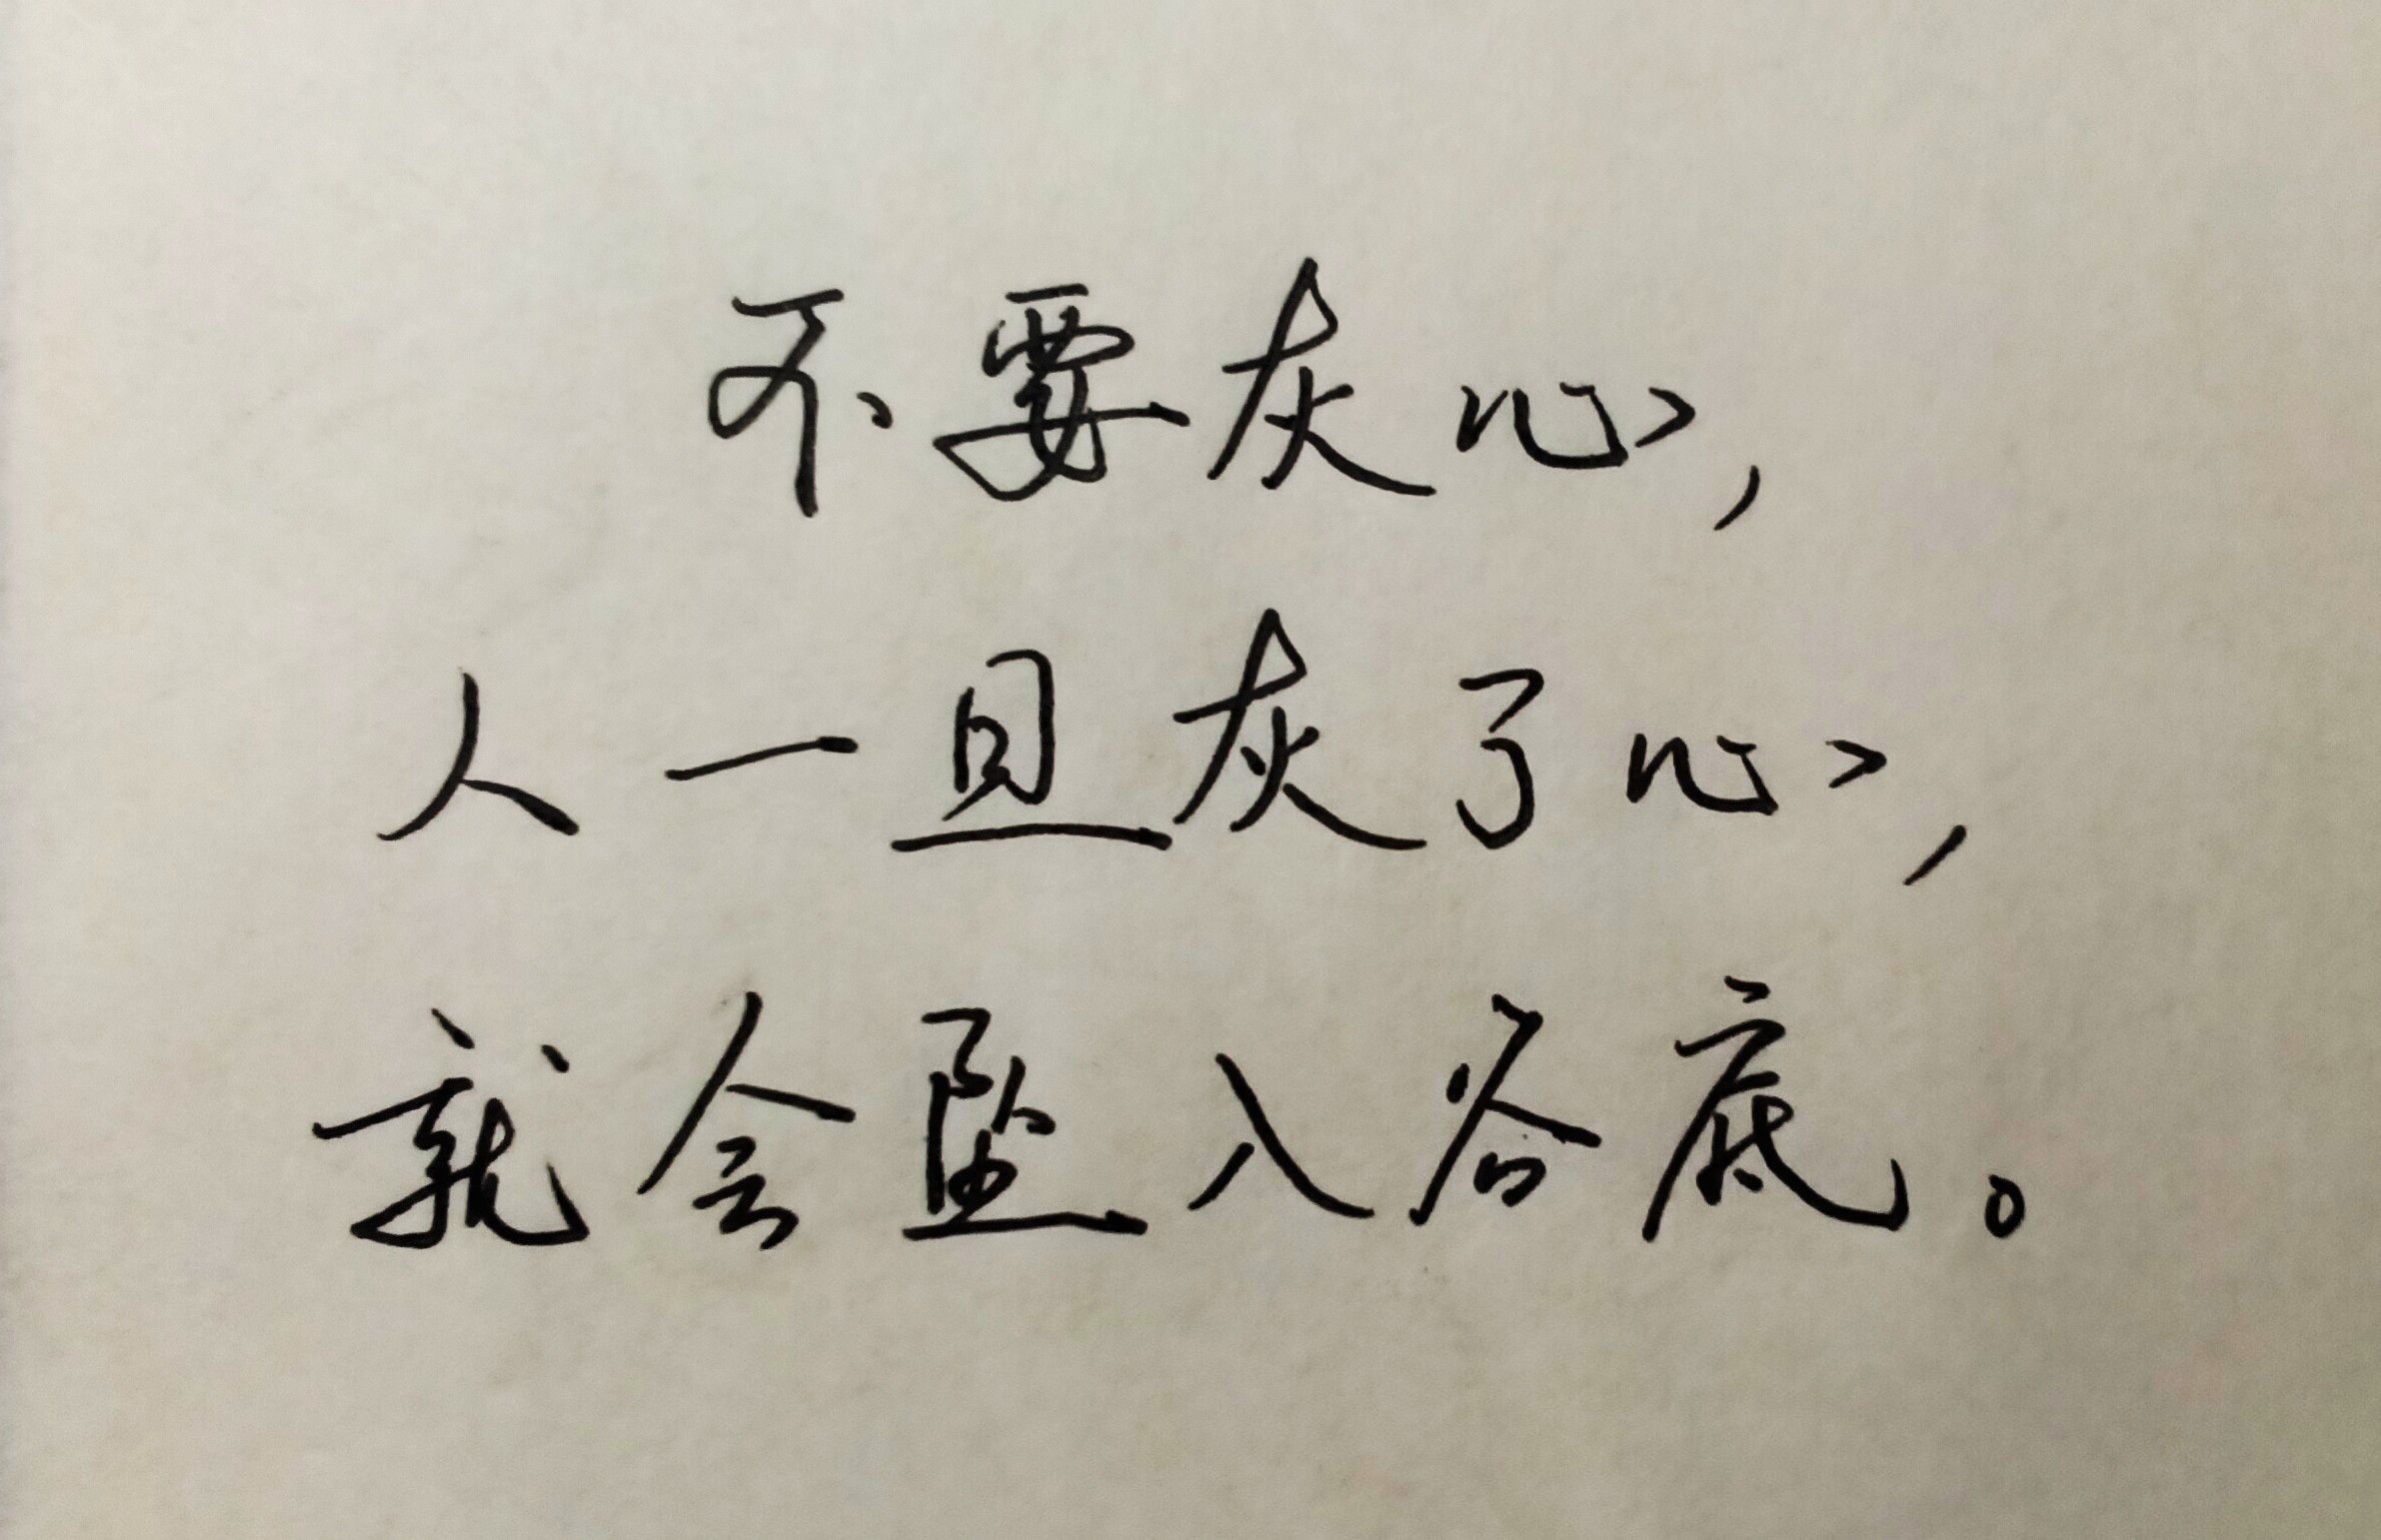 不要灰心，
人一旦灰了心，
就会坠入谷底。